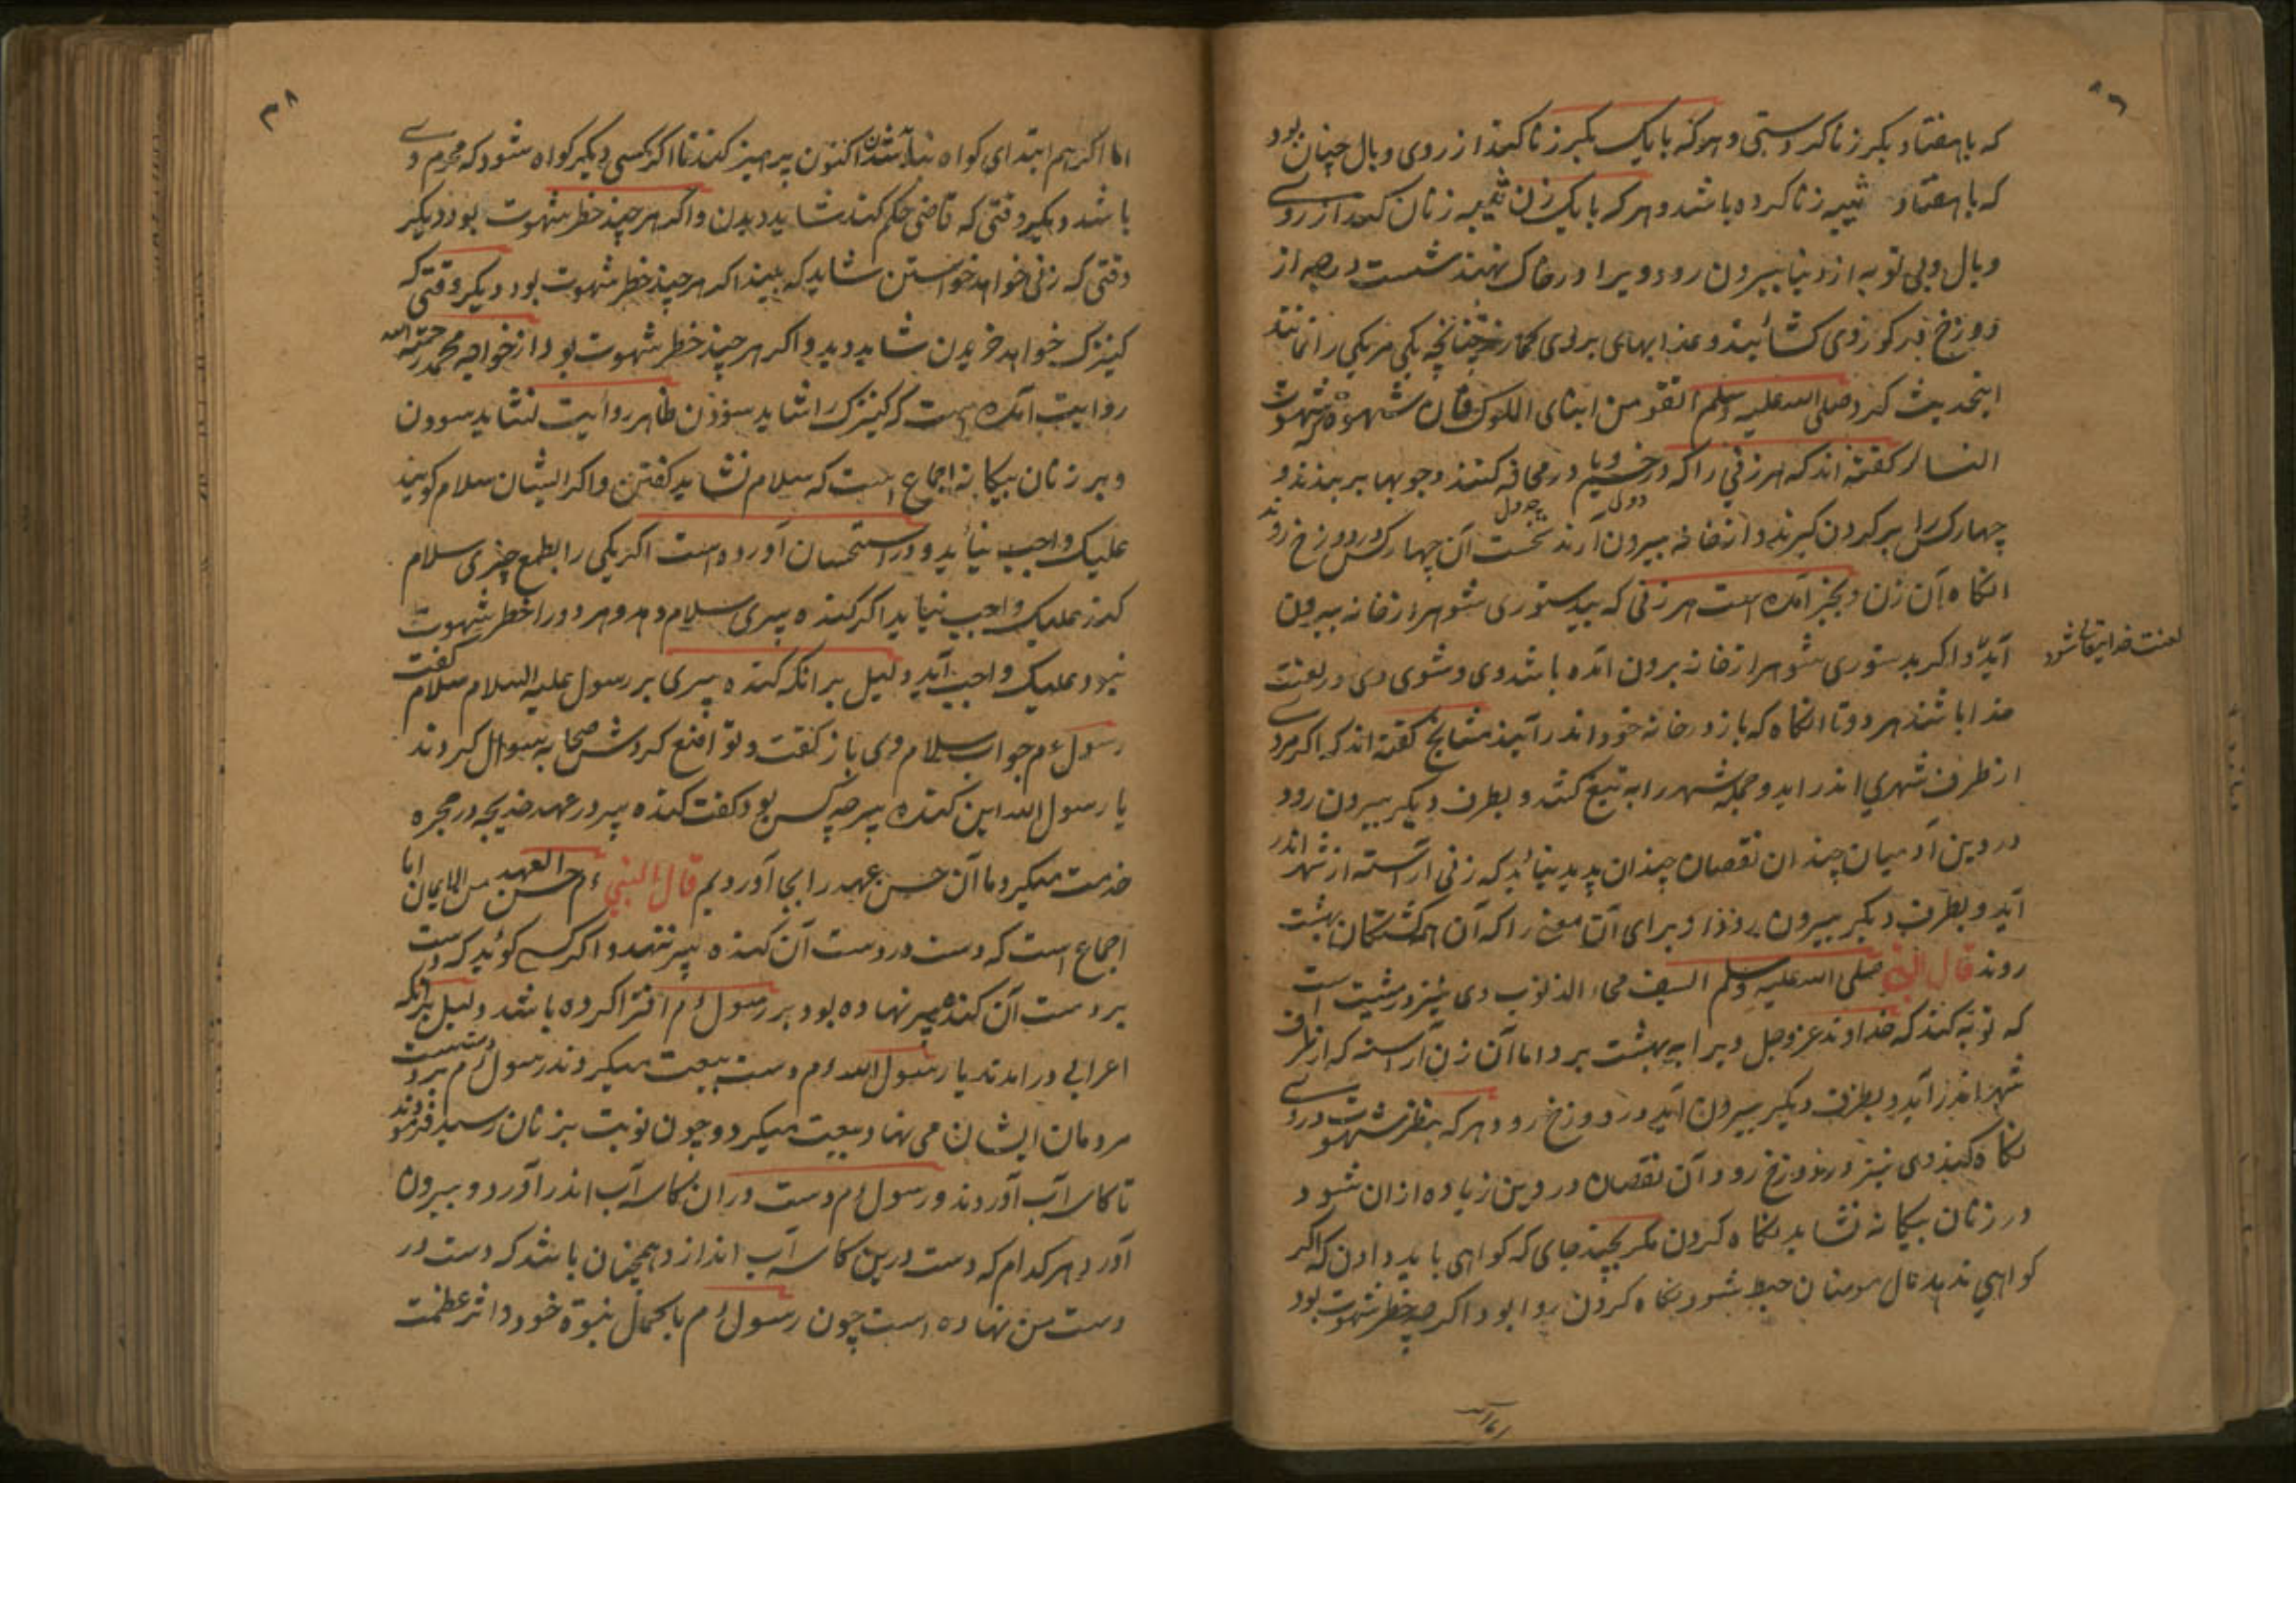 که با هفتاد بکر زنا کردستی و هرکه با یک بکر زنا کند از روی وبال چنان بود
که با هفتاد ثیبه زنا کرده باشد و هر که با یک زن ثیبه زنان کند از روی
وبال وبی توبه از دنیا بیرون رود ویرا در خاک نهند شست در چه از
دوزخ در کور وی کشایند و عذابهای بروی کمارند چنانچه یکی مر یکی را نماند
اینحدیث کرد صلی الله علیه وسلم اتقو من ابنای الملوک فان شهوة کشهوت
النسا و کفته اند که هر زنی را که در خیم و یا در محافه کنند و چوبها بر بندند و
چهار کس را بر کردن کیرند و از خانه بیرون آرند نخست آن چهار کس در دوزخ روند
انکاه آن زن و بخبر آمده است هر زنی که بیدستوری شوهر از خانه بیرون
آید و اکر بدستوری شوهر از خانه برون آمده باشد وی و شوی وی در لعنت
لعنت خدایتعالی شود
خدا باشند هر دو تا انکاه که باز در خانه خود اندر آیند مشایخ کفته اند که اکر مردی
از طرف شهری اندر اید و جمله شهر را به تیغ کشد و بطرف دیکر بیرون رود
در دین آدمیان چندان نقصان چندان پدید نیاید که زنی آراسته از شهر اندر
آید و بطرف دیکر بیرون رود و برای آن معنی را که آن همه کشتکان به بهشت
روند قال النبی صلی الله علیه وسلم السیف محاء الذنوب وی نیز در مشیت است
که توبه کند که خداوند عز وجل ویرا به بهشت برد اما آن زن آراسته که از طرف
شهر اندر آید و بطرف دیکر بیرون آید در دوزخ رود و هر که بنظر شهوت در روی
نکاه کند وی نیز در دوزخ رود آن نقصان در دین زیاده از ان شود
در زنان بیکانه نشاید نکاه کردن مکر بچند جای که کواهی باید دادن که اکر
کواهی ندهد مال مومنان حبط شود نکاه کردن روا بود اکر چه خطر شهوت بود
۳۸
اما اکر هم ابتدای کواه نباشد تا اکنون پرهیز کند تا اکر کسی دیکر کواه شود که محرم وی
باشد دیکر وقتی که قاضی حکم کند شاید دیدن و اکر هر چند خطر شهوت بود دیکر
وقتی که زنی خواهد خواستن شاید که بیند اکر هر چند خطر شهوت بود دیکر وقتی که
کنیزک خواهد خریدن شاید دید و اکر هر چند خطر شهوت بود از خواجه محمد رحمة الله
روایت آمده است که کنیزک را شاید سودن ظاهر روایت نشاید سوودن
و بر زنان بیکانه اجماع است که سلام نشاید کفتن و اکر ایشان سلام کویند
علیک واجب نیاید و در استحسان آورده است اکر یکی را بطمع چیزی سلام
کند علیک واجب نیاید اکر کنده پیری سلام دهد و هر دو را خطر شهوت
نبود علیک واجب آید دلیل بر انکه کنده پیری بر رسول علیه السلام سلام کفت
رسول ءم جواب سلام وی باز کفت و تواضع کردش صحابه سوال کردند
یا رسول الله این کنده پیر چه کس بود کفت کنده پیر در عهد خدیجه در حجره
خدمت میکرد ما آن حسن عهد را بجا آوردیم قال النبی ءم حسن العهد من الایمان اما
اجماع است که دست در دست آن کنده پیر ننهد و اکر کسی کوئد که دست
بر دست آن کنده پیر نهاده بود بر رسول ءم افترا کرده باشد دلیل برانکه
اعرابی درامدند با رسول الله ءم دست بیعت میکردند رسول ءم دست بر دست
مردمان ایشان می نهاد و بیعت میکرد و چون نوبت بزنان رسید فرمودند
تا کاسه آب آوردند و رسول ءم دست دران کاسه آب اندر آورد و بیرون
آورد هر کدام که دست درین کاسه آب اندازد همچنان باشد که دست در
دست من نهاده است چون رسول ءم با کمال نبوة خود و اثر عظمت